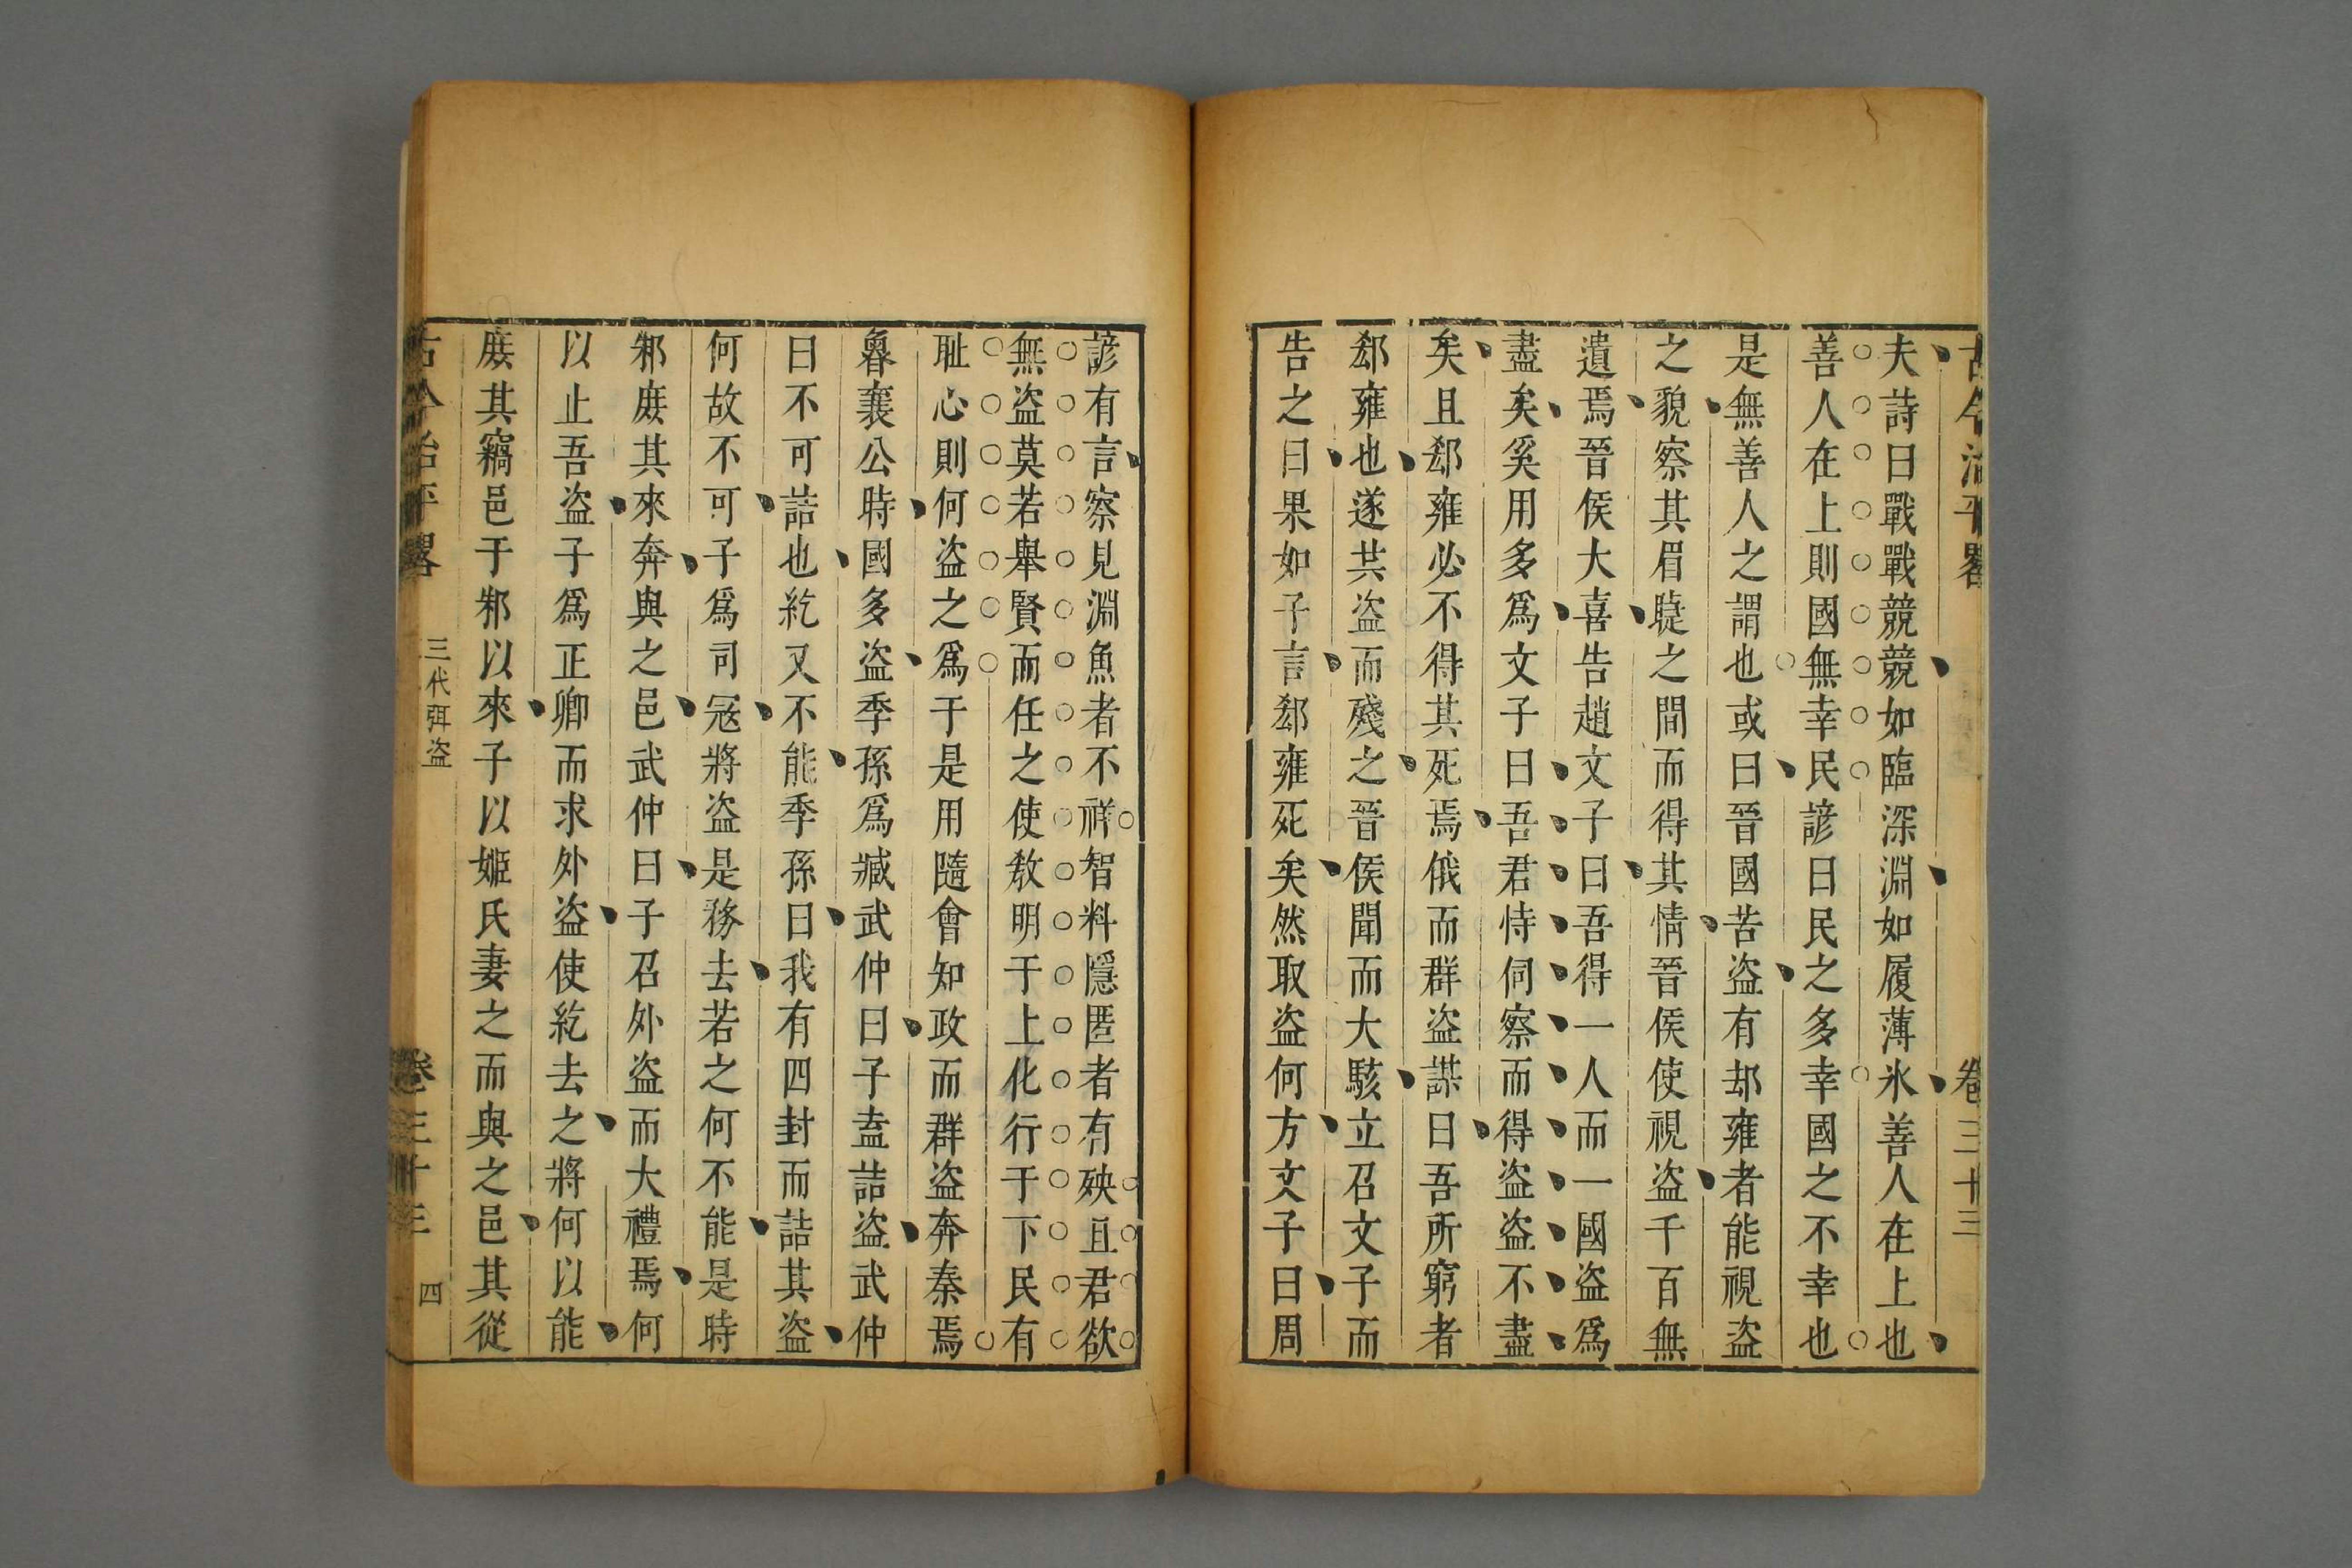 古今治平畧 卷三十三
夫詩曰戰戰兢兢如臨深淵如履薄氷善人在上也
善人在上則國無幸民諺曰民之多幸國之不幸也
是無善人之謂也或曰晉國苦盜有郄雍者能視盜
之貌察其眉睫之間而得其情晉侯使視盜千百無
遺焉晉侯大喜告趙文子曰吾得一人而一國盜爲
盡矣奚用多爲文子曰吾君恃伺察而得盜盜不盡
矣且郄雍必不得其死焉俄而群盜謀曰吾所窮者
郄雍也遂共盜而殘之晉侯聞而大駭立召文子而
告之曰果如子言郄雍死矣然取盜何方文子曰周
諺有言察見淵魚者不祥智料隱匿者有殃且君欲
無盜莫若舉賢而任之使敎明于上化行于下民有
耻心則何盜之爲于是用隨會知政而群盜奔秦焉
魯襄公時國多盜季孫爲臧武仲曰子盍詰盜武仲
曰不可詰也紇又不能季孫曰我有四封而詰其盜
何故不可子爲司冦將盜是務去若之何不能是時
邾庻其來奔與之邑武仲曰子召外盜而大禮焉何
以止吾盜子爲正卿而求外盜使紇去之將何以能
庻其竊邑于邾以來子以姬氏妻之而與之邑其從
古今治平畧 三代弭盜 卷三十三 四